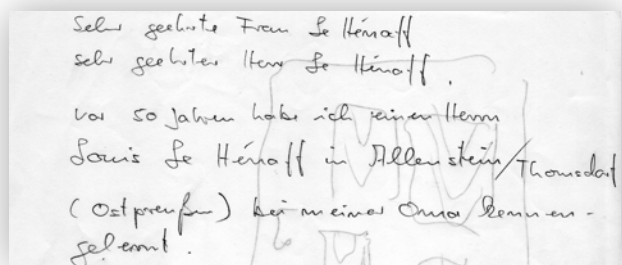 Sehr geehrte Frau Le Hénaff
sehr geehrter Herr Le Hénaff,
vor 50 Jahren habe ich einen Herrn
Louis Le Hénaff in Allenstein/Thomsdorf
(Ostpreußen) bei meiner Oma kennen-
gelernt.